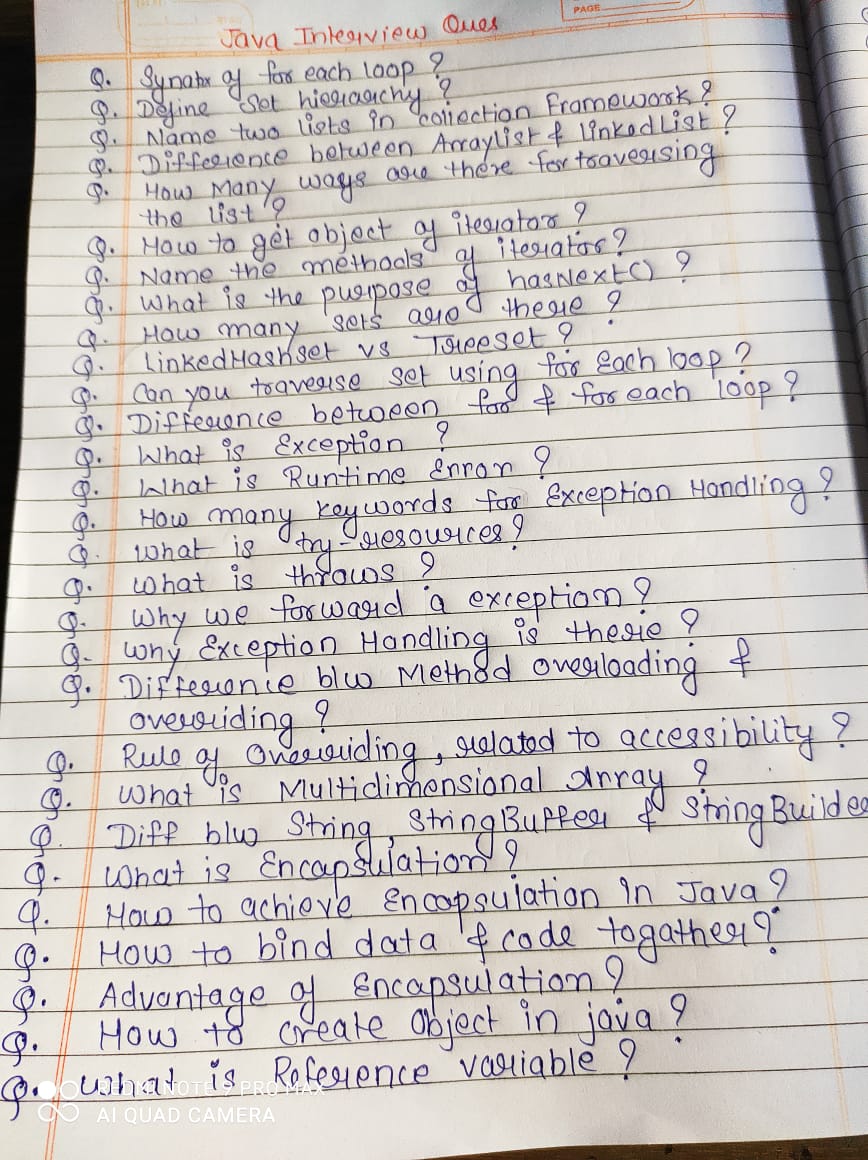 PAGE
Java Interview Ques
Q. Synatx of for each loop ?
Q. Define Set hierarchy ?
Q. Name two lists in collection Framework ?
Q. Difference between Arraylist & linkedList ?
Q. How Many ways are there for traversing
the list ?
Q. How to get object of iterator ?
Q. Name the methods of iterator ?
Q. What is the purpose of hasNext() ?
Q. How many sets are there ?
Q. LinkedHashset vs Treeset ?
Q. Can you traverse set using for each loop ?
Q. Difference between for & for each loop ?
Q. What is Exception ?
Q. What is Runtime Error ?
Q. How many keywords for Exception Handling ?
Q. What is try-resources ?
Q. What is throws ?
Q. Why we forward a exception ?
Q. Why Exception Handling is there ?
Q. Difference b/w Method overloading &
overriding ?
Q. Rule of Overriding, related to accessibility ?
Q. What is Multidimensional array ?
Q. Diff b/w String, StringBuffer & StringBuilder
Q. What is Encapsulation ?
Q. How to achieve encapsulation in Java ?
Q. How to bind data & code togather ?
Q. Advantage of encapsulation ?
Q. How to create Object in java ?
Q. What is Reference variable ?
REDMI NOTE 9 PRO MAX
AI QUAD CAMERA